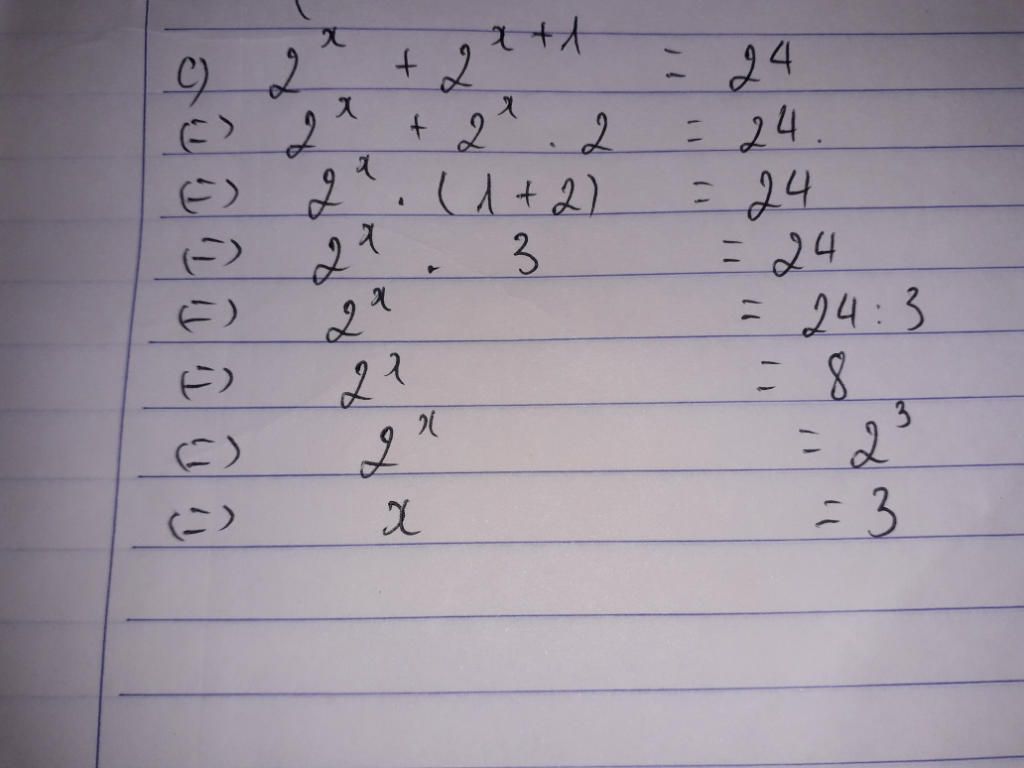 c) 2^x + 2^{x+1} = 24
(=) 2^x + 2^x . 2 = 24.
(=) 2^x . (1 + 2) = 24
(=) 2^x . 3 = 24
(=) 2^x = 24 : 3
(=) 2^x = 8
(=) 2^x = 2^3
(=) x = 3